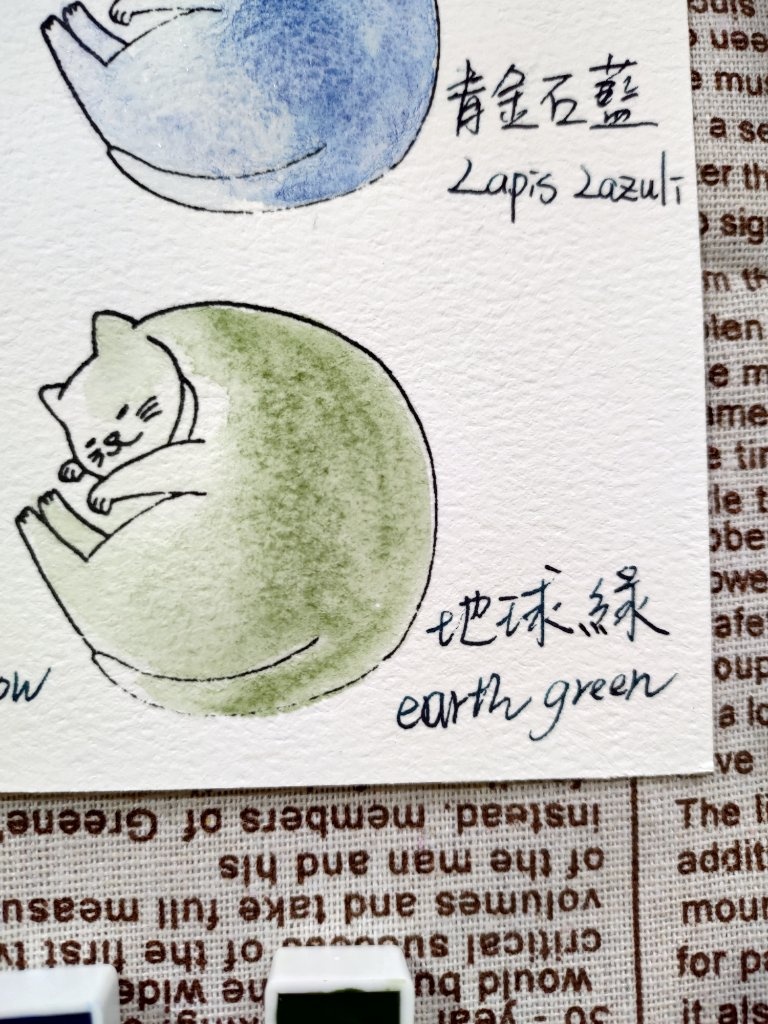 青金石藍
Lapis Lazuli
地球綠
earth green
ow
instead, members of Greene'
of the man and his
volumes and take full measu
critical success of the first tw
would bu the wide
30 - year
The li
addit
mour
for pa
it als
uen
e mus
a se
er th
sign
m th
len
e m
ame
e tin
le t
obe
owe
afe
oup
a lo
ve